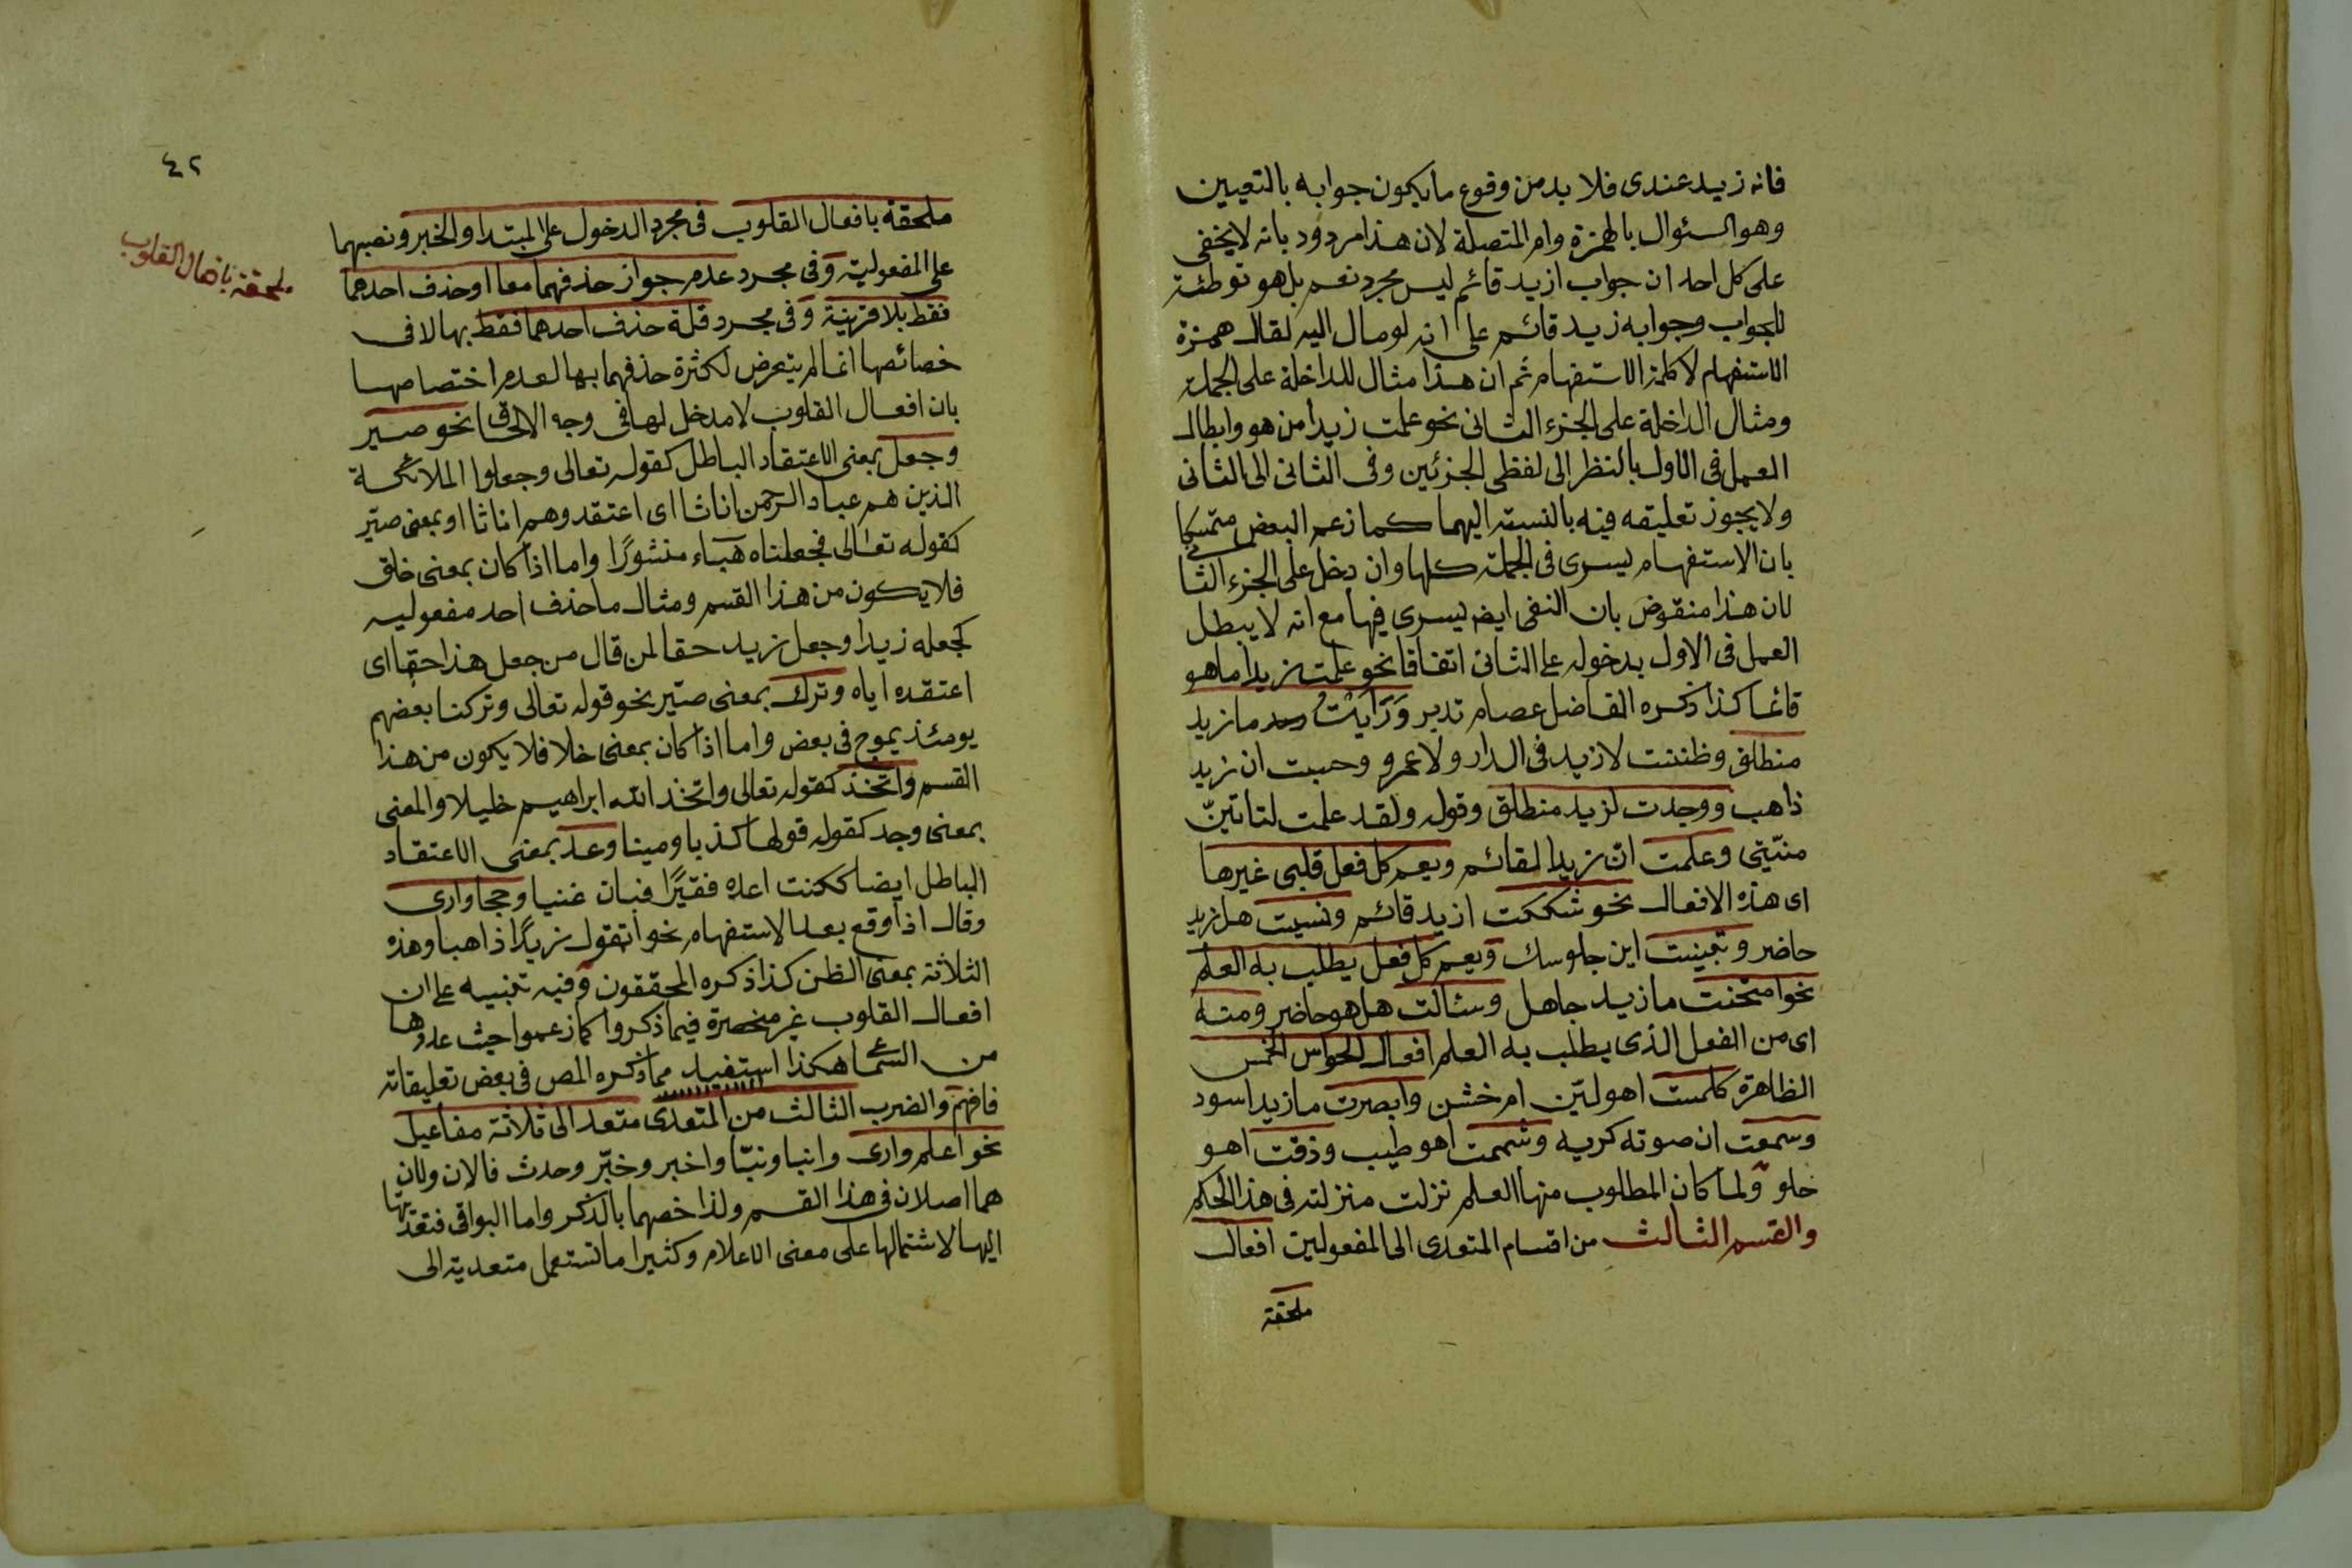 فانه زيد عندى فلا بد من وقوع ما يكون جوابه بالتعيين
وهو السئوال بالهمزة وام المتصلة لان هذا مردود بانه لا يخفى
على كل احد ان جواب ازيد قائم ليس مجرد نعم بل هو توطئة
للجواب وجوابه زيد قائم على انه لو مال اليه لقال همزة
الاستفهام لا كلمة الاستفهام ثم ان هذا مثال للداخلة على الجملة
ومثال الداخلة على الجزء الثانى نحو علمت زيدا من هو وابطال
العمل فى الاول بالنظر الى لفظى الجزئين وفى الثانى الى الثانى
ولا يجوز تعليقه فيه بالنسبة اليهما كما زعم البعض متمسكا
بان الاستفهام يسرى فى الجملة كلها وان دخل على الجزء الثانى
لان هذا منقوض بان النفى ايضا يسرى فيها مع انه لا يبطل
العمل فى الاول بدخوله على الثانى اتفاقا نحو علمت زيدا ما هو
قائما كذا ذكره الفاضل عصام تدبر وَرَأَيْتُ ما زيد
منطلق وظننت لا زيد فى الدار ولا عمرو وحسبت ان زيد
ذاهب ووجدت لزيد منطلق وقوله ولقد علمت لتاتينّ
منيّتى وعلمت انّ زيدا لقائم ويعم كل فعل قلبى غيرها
اى هذه الافعال نحو شككت ازيد قائم ونسيت هل زيد
حاضر وتمينت اين جلوسك ويعم كل فعل يطلب به العلم
نحو امتحنت ما زيد جاهل وسئالت هل هو حاضر ومنه
اى من الفعل الذى يطلب به العلم افعال الحواس الخمس
الظاهرة كلمست اهو ليّن ام خشن وابصرت ما زيد اسود
وسمعت ان صوته كريه وشممت اهو طيب وذقت اهو
حلو ولما كان المطلوب منها العلم نزلت منزلته فى هذا الحكم
والقسم الثالث من اقسام المتعدى الى المفعولين افعال
ملحقة
٤٢
ملحقة بافعال القلوب
ملحقة بافعال القلوب فى مجرد الدخول على المبتدا والخبر ونصبهما
على المفعولية وفى مجرد عدم جواز حذفهما معا او حذف احدهما
فقط بلا قرينة وفى مجرد قلة حذف احدهما فقط بها لا فى
خصائصها انما لم يتعرض لكثرة حذفهما بها لعدم اختصاصها
بان افعال القلوب لا مدخل لها فى وجه الالحاق نحو صير
وجعل بمعنى الاعتقاد الباطل كقوله تعالى وجعلوا الملائكة
الذين هم عباد الرحمن اناثا اى اعتقدوهم اناثا او بمعنى صيّر
كقوله تعالى فجعلناه هَبَاء منثورًا واما اذا كان بمعنى خلق
فلا يكون من هذا القسم ومثال ما حذف احد مفعوليه
كجعله زيدا وجعل زيد حقا لمن قال من جعل هذا حقا اى
اعتقده اياه وترك بمعنى صيّر نحو قوله تعالى وتركنا بعضهم
يومئذ يموج فى بعض واما اذا كان بمعنى خلا فلا يكون من هذا
القسم واتخذ كقوله تعالى واتخذ الله ابراهيم خليلا والمعنى
بمعنى وجد كقوله قولها كذبا ومينا وعد بمعنى الاعتقاد
الباطل ايضا ككنت اعده فقيرًا فبان غنيا وحجا وارى
وقال اذا وقع بعد الاستفهام نحو اتقول زيدًا ذاهبا وهذه
الثلاثة بمعنى الظن كذا ذكره المحققون وفيه تنبيه على ان
افعال القلوب غير منحصرة فيما ذكروا كما زعموا حيث عدوها
من هكذا استفيد مما ذكره المص فى بعض تعليقاته
فافهم والضرب الثالث من المتعدى متعد الى ثلاثة مفاعيل
نحو اعلم وارى وانبا ونبّا واخبر وخبّر وحدث فالان ولان
هما اصلان فى هذا القسم ولذا خصهما بالذكر واما البواقى فتعديتها
اليها لاشتمالها على معنى الاعلام وكثيرا ما تستعمل متعدية الى